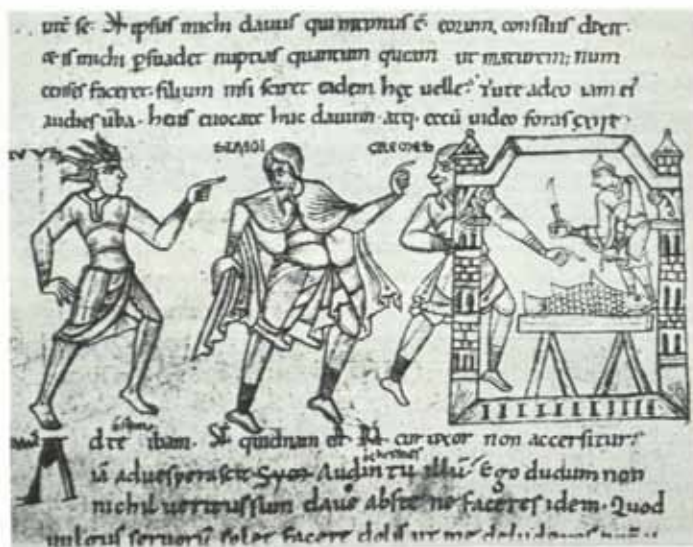 ipsus michi dauus qui intimus ē eorum consiliis dixit.
& is michi psuadet nuptias quantum queam ut maturem; num
censes faceret. filium nisi sciret eadem hęc uelle? Tute adeo iam ei'
audies uba. heus euocate huc dauum. atq. eccū uideo foras exire.
SIMO CREMES
dte ibam. quidnam est cur uxor non accersitur?
iā aduesperascit Symo Audin tu illū. Ego dudum non
nichil ueritus sum daue abs te ne faceres idem. Quod
uulgus seruorū solet facere dolis ut me